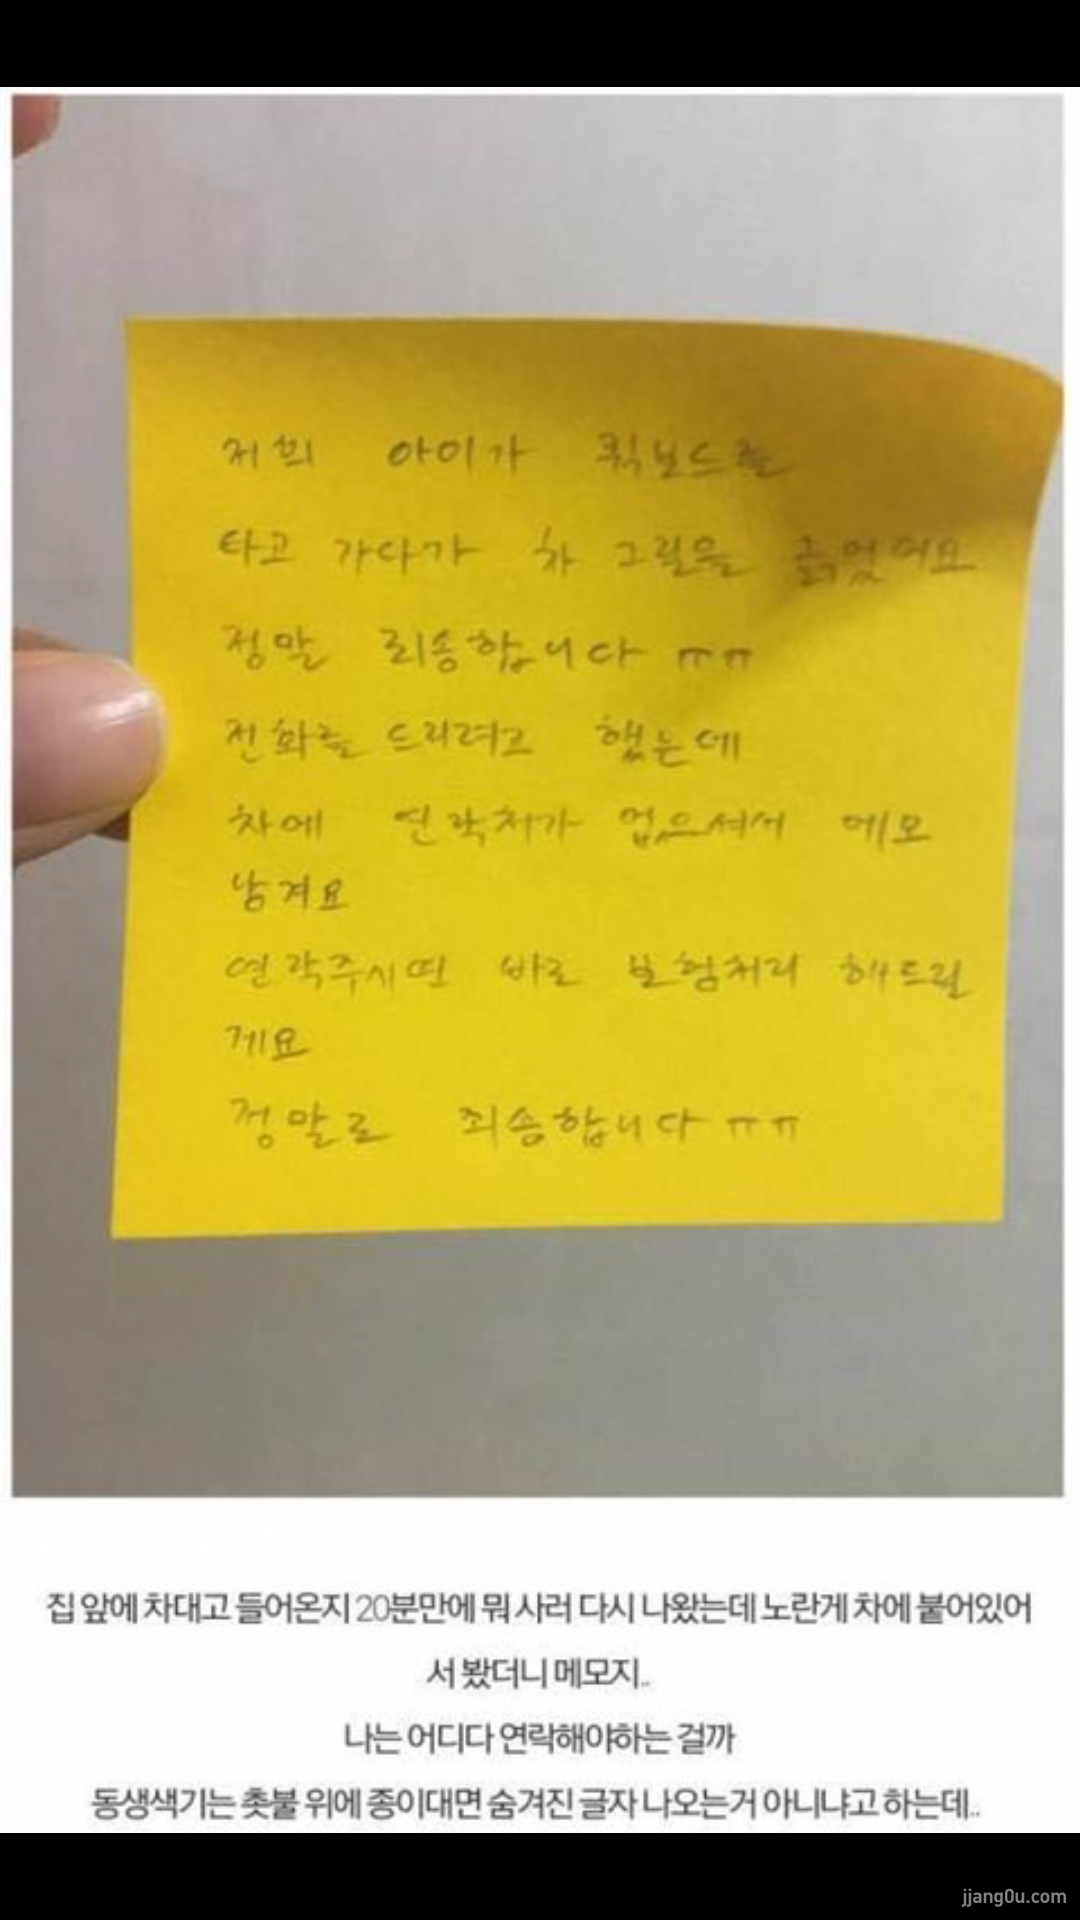 저희 아이가 퀵보드를
타고 가다가 차 그릴을 긁었어요
정말 죄송합니다 ㅠㅠ
전화를 드리려고 했는데
차에 연락처가 없으셔서 메모
남겨요
연락주시면 바로 보험처리 해드릴
게요
정말로 죄송합니다 ㅠㅠ
집 앞에 차대고 들어온지 20분만에 뭐 사러 다시 나왔는데 노란게 차에 붙어있어
서 봤더니 메모지..
나는 어디다 연락해야하는 걸까
동생색기는 촛불 위에 종이대면 숨겨진 글자 나오는거 아니냐고 하는데..
jjang0u.com